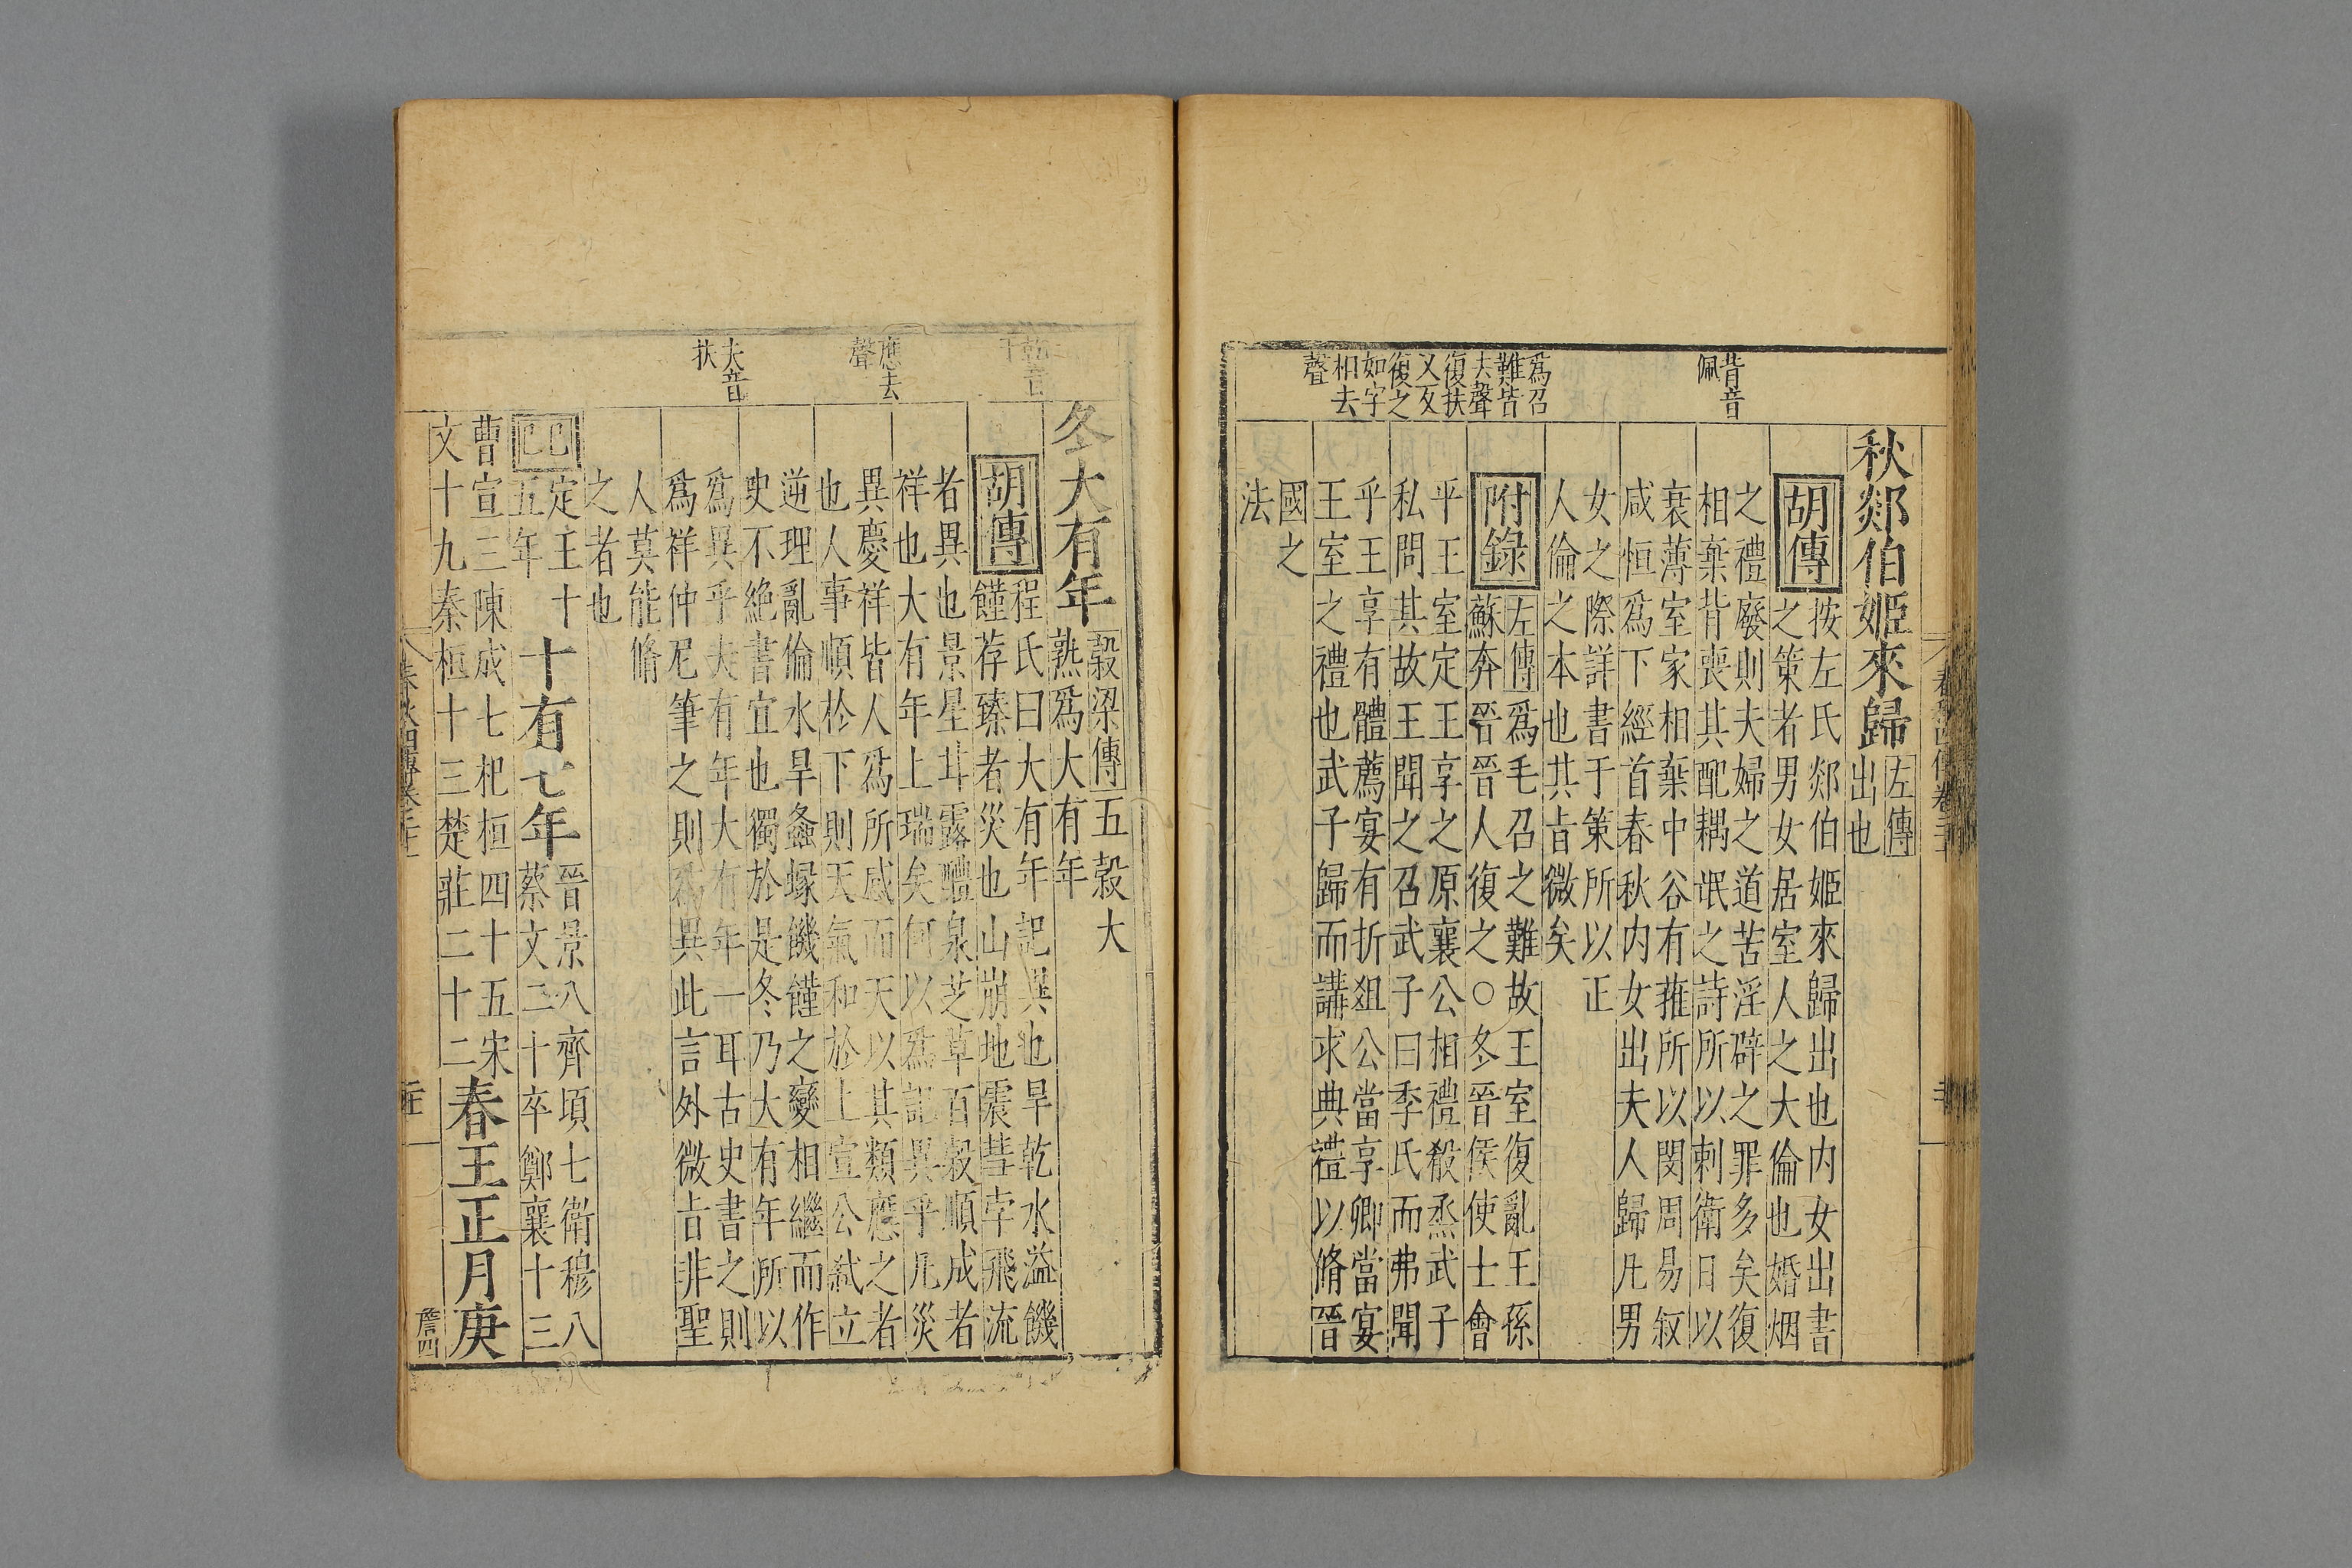 背音
佩
爲召
難皆
去聲
復扶
又反
復之
如字
相去
聲
秋郯伯姬來歸
左傳
出也
胡傳
按左氏郯伯姬來歸出也內女出書
之策者男女居室人之大倫也婚烟
之禮廢則夫婦之道苦淫辟之罪多矣復
相棄背喪其配耦氓之詩所以刺衛日以
衰薄室家相棄中谷有蓷所以閔周易叙
咸恒爲下經首春秋內女出夫人歸凡男
女之際詳書于策所以正
人倫之本也其旨微矣
附錄
左傳爲毛召之難故王室復亂王孫
蘇奔晉晉人復之○冬晉侯使士會
平王室定王享之原襄公相禮殽烝武子
私問其故王聞之召武子曰季氏而弗聞
乎王享有體薦宴有折俎公當享卿當宴
王室之禮也武子歸而講求典禮以脩晉
國之
法
乾音
干
應去
聲
夫音
扶
冬大有年
穀梁傳五穀大
熟爲大有年
胡傳
程氏曰大有年記異也旱乾水溢饑
饉荐臻者災也山崩地震彗孛飛流
者異也景星甘露醴泉芝草百穀順成者
祥也大有年上瑞矣何以爲記異乎凡災
異慶祥皆人爲所感而天以其類應之者
也人事順於下則天氣和於上宣公弒立
逆理亂倫水旱螽蝝饑饉之變相繼而作
史不絶書宜也獨於是冬乃大有年所以
爲異乎夫有年大有年一耳古史書之則
爲祥仲尼筆之則爲異此言外微旨非聖
人莫能脩
之者也
己巳
定王十
五年
十有七年
晉景八齊頃七衛穆八
蔡文二十卒鄭襄十三
曹宣三陳成七杞桓四十五宋
文十九秦桓十三楚莊二十二
春王正月庚
詹四